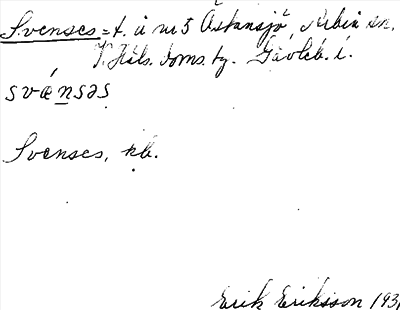 Svenses = t. å nr 5 Åstansjö, Arbrå sn.
V. Häls. doms. tg. Gävleb. l.
svǽnsəs
Svenses, kb.
Erik Eriksson 193